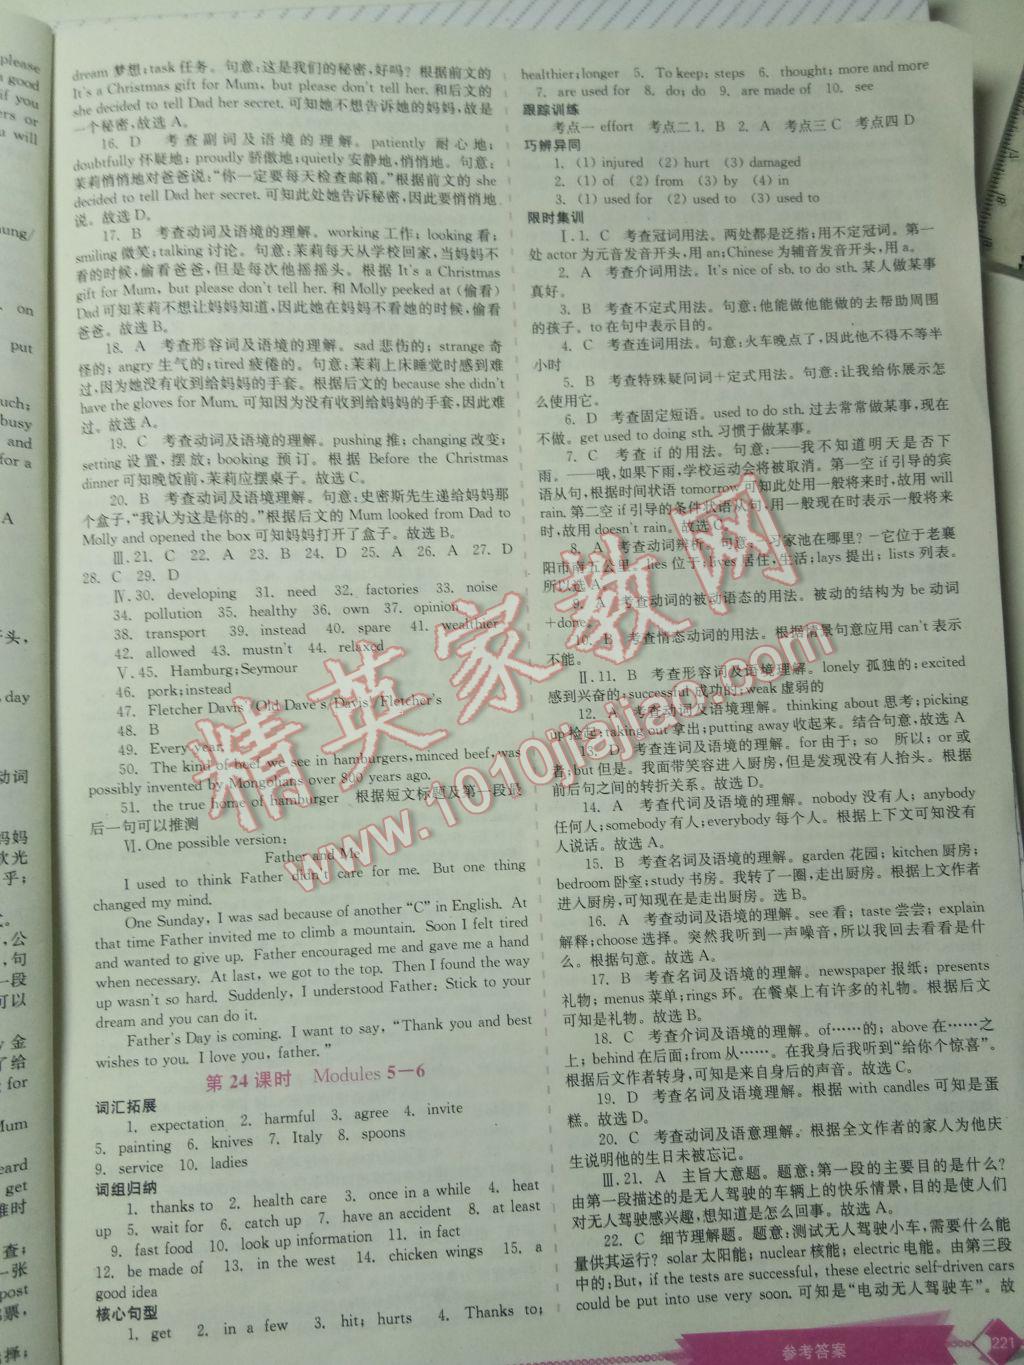 dream 梦想;task 任务。句意:这是我们的秘密,好吗? 根据前文的
It's a Christmas gift for Mum, but please don't tell her. 和后文的
she decided to tell Dad her secret. 可知她不想告诉她的妈妈,故是
一个秘密,故选 A。
16. D 考查副词及语境的理解。patiently 耐心地;
doubtfully 怀疑地; proudly 骄傲地;quietly 安静地,悄悄地。句意:
茉莉悄悄地对爸爸说:“你一定要每天检查邮箱。”根据前文的 she
decided to tell Dad her secret. 可知此处她告诉秘密,因此要悄悄地
说。故选 D。
17. B 考查动词及语境的理解。working 工作; looking 看;
smiling 微笑; talking 讨论。句意:茉莉每天从学校回家,当妈妈不
看的时候,偷看爸爸,但是每次他摇摇头。根据 It's a Christmas
gift for Mum, but please don't tell her. 和 Molly peeked at (偷看)
Dad 可知茉莉不想让妈妈知道,因此她在妈妈不看她的时候,偷看
爸爸。故选 B。
18. A 考查形容词及语境的理解。sad 悲伤的; strange 奇
怪的; angry 生气的; tired 疲倦的。句意:茉莉上床睡觉时感到难
过,因为她没有收到给妈妈的手套。根据后文的 because she didn't
have the gloves for Mum. 可知因为没有收到给妈妈的手套,因此难
过。故选 A。
19. C 考查动词及语境的理解。pushing 推; changing 改变;
setting 设置,摆放; booking 预订。根据 Before the Christmas
dinner 可知晚饭前,茉莉应摆桌子。故选 C。
20. B 考查动词及语境理解。句意:史密斯先生递给妈妈那
个盒子,“我认为这是你的。”根据后文的 Mum looked from Dad to
Molly and opened the box 可知妈妈打开了盒子。故选 B。
Ⅲ. 21. C 22. A 23. B 24. D 25. A 26. A 27. D
28. C 29. D
Ⅳ. 30. developing 31. need 32. factories 33. noise
34. pollution 35. healthy 36. own 37. opinion
38. transport 39. instead 40. spare 41. wealthier
42. allowed 43. mustn't 44. relaxed
Ⅴ. 45. Hamburg; Seymour
46. pork; instead
47. Fletcher Davis'/Old Dave's/Davis'/Fletcher's
48. B
49. Every year.
50. The kind of beef we see in hamburgers, minced beef, was
possibly invented by Mongolians over 800 years ago.
51. the true home of hamburger 根据短文标题及第一段最
后一句可以推测
Ⅵ. One possible version:
Father and Me
I used to think Father didn't care for me. But one thing
changed my mind.
One Sunday, I was sad because of another “C” in English. At
that time Father invited me to climb a mountain. Soon I felt tired
and wanted to give up. Father encouraged me and gave me a hand
when necessary. At last, we got to the top. Then I found the way
up wasn't so hard. Suddenly, I understood Father: Stick to your
dream and you can do it.
Father's Day is coming. I want to say, “Thank you and best
wishes to you. I love you, father.”
第 24 课时 Modules 5—6
词汇拓展
1. expectation 2. harmful 3. agree 4. invite
5. painting 6. knives 7. Italy 8. spoons
9. service 10. ladies
词组归纳
1. thanks to 2. health care 3. once in a while 4. heat
up 5. wait for 6. catch up 7. have an accident 8. at least
9. fast food 10. look up information 11. in fact
12. be made of 13. in the west 14. chicken wings 15. a
good idea
核心句型
1. get 2. in a few 3. hit; hurts 4. Thanks to;
healthier; longer 5. To keep; steps 6. thought; more and more
7. are used for 8. do; do 9. are made of 10. see
跟踪训练
考点一 effort 考点二 1. B 2. A 考点三 C 考点四 D
巧辨异同
1. (1) injured (2) hurt (3) damaged
2. (1) of (2) from (3) by (4) in
3. (1) used for (2) used to (3) used to
限时集训
Ⅰ. 1. C 考查冠词用法。两处都是泛指;用不定冠词。第一
处 actor 为元音发音开头,用 an; Chinese 为辅音发音开头,用 a。
2. A 考查介词用法。It's nice of sb. to do sth. 某人做某事
真好。
3. B 考查不定式用法。句意:他能做他能做的去帮助周围
的孩子。to 在句中表示目的。
4. C 考查连词用法。句意:火车晚点了,因此他不得不等半
小时
5. B 考查特殊疑问词+定式用法。句意:让我给你展示怎
么使用它。
6. D 考查固定短语。used to do sth. 过去常常做某事,现在
不做。get used to doing sth. 习惯于做某事。
7. C 考查 if 的用法。句意:——我不知道明天是否下
雨。——哦,如果下雨,学校运动会将被取消。第一空 if 引导的宾
语从句,根据时间状语 tomorrow 可知此处用一般将来时,故用 will
rain. 第二空 if 引导的条件状语从句,用一般现在时表示一般将来
时,故用 doesn't rain。故选 C。
8. A 考查动词辨析。句意:—习家池在哪里?—它位于老襄
阳市南五公里。lies 位于; lives 居住,生活; lays 提出; lists 列表。
所以选 A。
9. A 考查动词的被动语态的用法。被动的结构为 be 动词
+done。
10. B 考查情态动词的用法。根据情景句意应用 can't 表示
不能。
Ⅱ. 11. B 考查形容词及语境理解。lonely 孤独的; excited
感到兴奋的; successful 成功的; weak 虚弱的
12. A 考查动词及语境理解。thinking about 思考; picking
up 捡起; taking out 拿出; putting away 收起来。结合句意,故选 A
13. D 考查连词及语境的理解。for 由于; so 所以; or 或
者; but 但是。我面带笑容进入厨房,但是发现没有人抬头。根据
前后句之间的转折关系。故选 D。
14. A 考查代词及语境的理解。nobody 没有人; anybody
任何人; somebody 有人; everybody 每个人。根据上下文可知没有
人说话。故选 A。
15. B 考查名词及语境的理解。garden 花园; kitchen 厨房;
bedroom 卧室; study 书房。我转了一圈,走出厨房。根据上文作者
进入厨房,可知现在是走出厨房。选 B。
16. A 考查动词及语境的理解。see 看; taste 尝尝; explain
解释; choose 选择。突然我听到一声噪音,所以我回去看看是什
么。根据句意。故选 A。
17. B 考查名词及语境的理解。newspaper 报纸; presents
礼物; menus 菜单; rings 环。在餐桌上有许多的礼物。根据后文
可知是礼物。故选 B。
18. C 考查介词及语境的理解。of……的; above 在……之
上; behind 在后面; from 从……。在我身后我听到“给你个惊喜”。
根据后文作者转身,可知是来自身后的声音。故选 C。
19. D 考查名词及语境理解。根据 with candles 可知是蛋
糕。故选 D。
20. C 考查动词及语意理解。根据全文作者的家人为他庆
生说明他的生日未被忘记。
Ⅲ. 21. A 主旨大意题。题意:第一段的主要目的是什么?
由第一段描述的是无人驾驶的车辆上的快乐情景,目的是使人们
对无人驾驶感兴趣,想知道是怎么回事。故选 A。
22. C 细节理解题。题意:测试无人驾驶小车,需要什么能
量供其运行? solar 太阳能; nuclear 核能; electric 电能。由第三段
中的: But, if the tests are successful, these electric self-driven cars
could be put into use very soon. 可知是“电动无人驾驶车”。故
参考答案
221
精英家教网
www.1010jiajiao.com